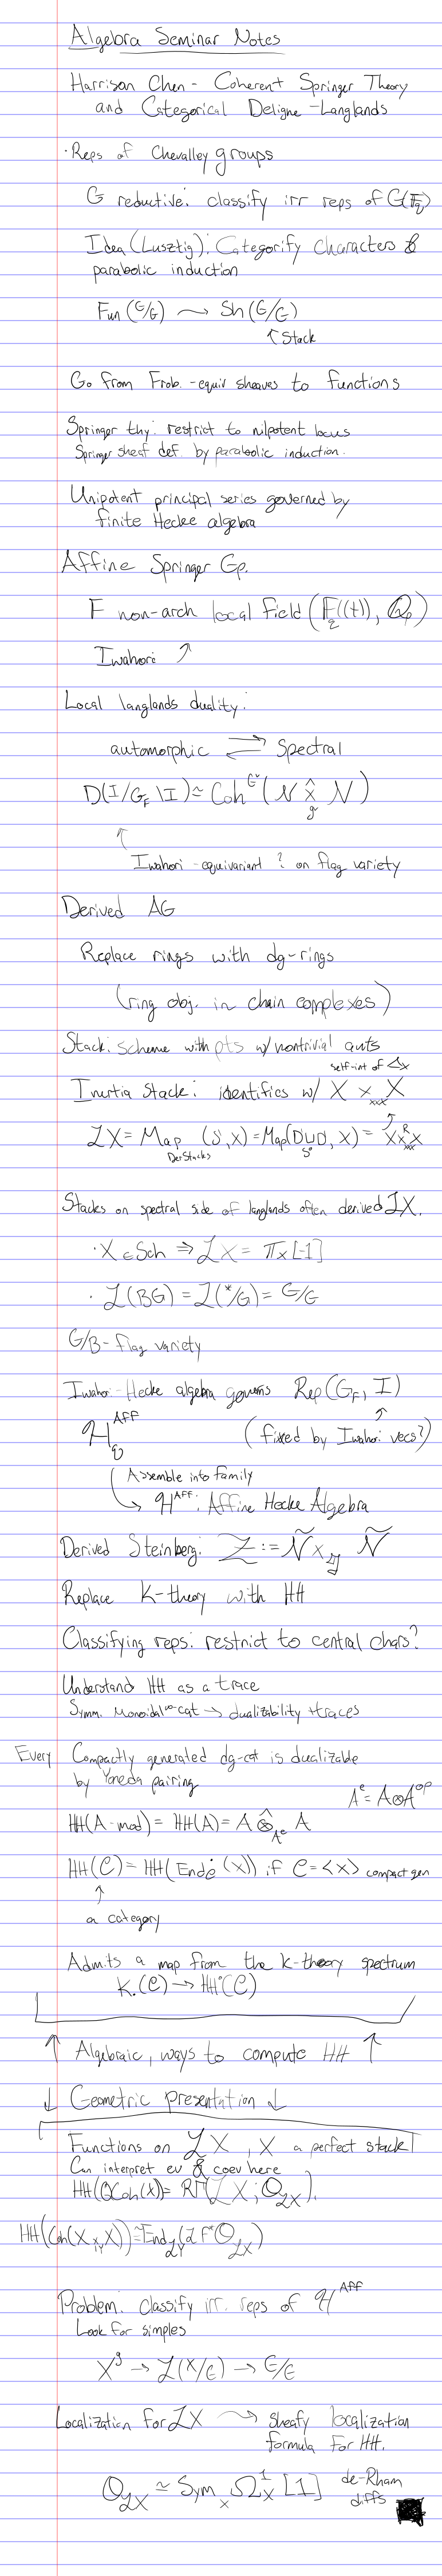 Algebra Seminar Notes
Harrison Chen - Coherent Springer Theory
and Categorical Deligne-Langlands
· Reps of Chevalley groups
G reductive: classify irr reps of G(𝔽_q)
Idea (Lusztig): Categorify characters &
parabolic induction
Fun (G/G) ⇝ Sh(G/G)
↑ Stack
Go from Frob.-equiv sheaves to functions
Springer thy: restrict to nilpotent locus
Springer sheaf def. by parabolic induction.
Unipotent principal series governed by
finite Hecke algebra
Affine Springer Gp.
F non-arch local field (𝔽_q((t)), ℚ_p)
Iwahori ↗
Local langlands duality:
automorphic ⇄ Spectral
D(I/G_F\I) ≃ Coh^{G^∨}(N ×̂_g N)
↑
Iwahori-equivariant ? on flag variety
Derived AG
Replace rings with dg-rings
(ring obj. in chain complexes)
Stack: scheme with pts w/ nontrivial auts
self-int of Δ_X
Inertia Stack: identifies w/ X ×_{X×X} X
ℒX = Map_{DerStacks}(S', X) = Map(D ⊔_{S°} D, X) = X ×^R_{X×X} X
Stacks on spectral side of langlands often derived ℒX.
· X ∈ Sch ⇒ ℒX = 𝕋_X[-1]
· ℒ(BG) = ℒ(*/G) = G/G
G/B - flag variety
Iwahori-Hecke algebra governs Rep(G_F, I)
ℋ_q^{AFF} (fixed by Iwahori vecs?)
Assemble into family
↳ ℋ^{AFF}: Affine Hecke Algebra
Derived Steinberg: Z := Ñ ×_g Ñ
Replace K-theory with HH
Classifying reps: restrict to central chars?
Understand HH as a trace
Symm. Monoidal ∞-cat → dualizability + traces
Every Compactly generated dg-cat is dualizable
by Yoneda pairing
A^e = A⊗A^{op}
HH(A-mod) = HH(A) = A ⊗̂_{A^e} A
HH(C) = HH(End_C(x)) if C = <x> compact gen
↑
a category
Admits a map from the K-theory spectrum
K.(C) → HH(C)
↑ Algebraic, ways to compute HH ↑
↓ Geometric presentation ↓
Functions on ℒX, X a perfect stack
Can interpret ev & coev here
HH(QCoh(X)) = RΓ(ℒX; O_{ℒX}).
HH(Coh(X ×_Y X)) ≃ End_{ℒY}(ℒf_* O_{ℒX})
Problem: classify irr. reps of ℋ^{AFF}
Look for simples
X^g → ℒ(X/G) → G/G
Localization for ℒX ⇝ sheafy localization
formula for HH.
O_{ℒX} ≃ Sym_X Ω¹_X[1] de-Rham
diffs